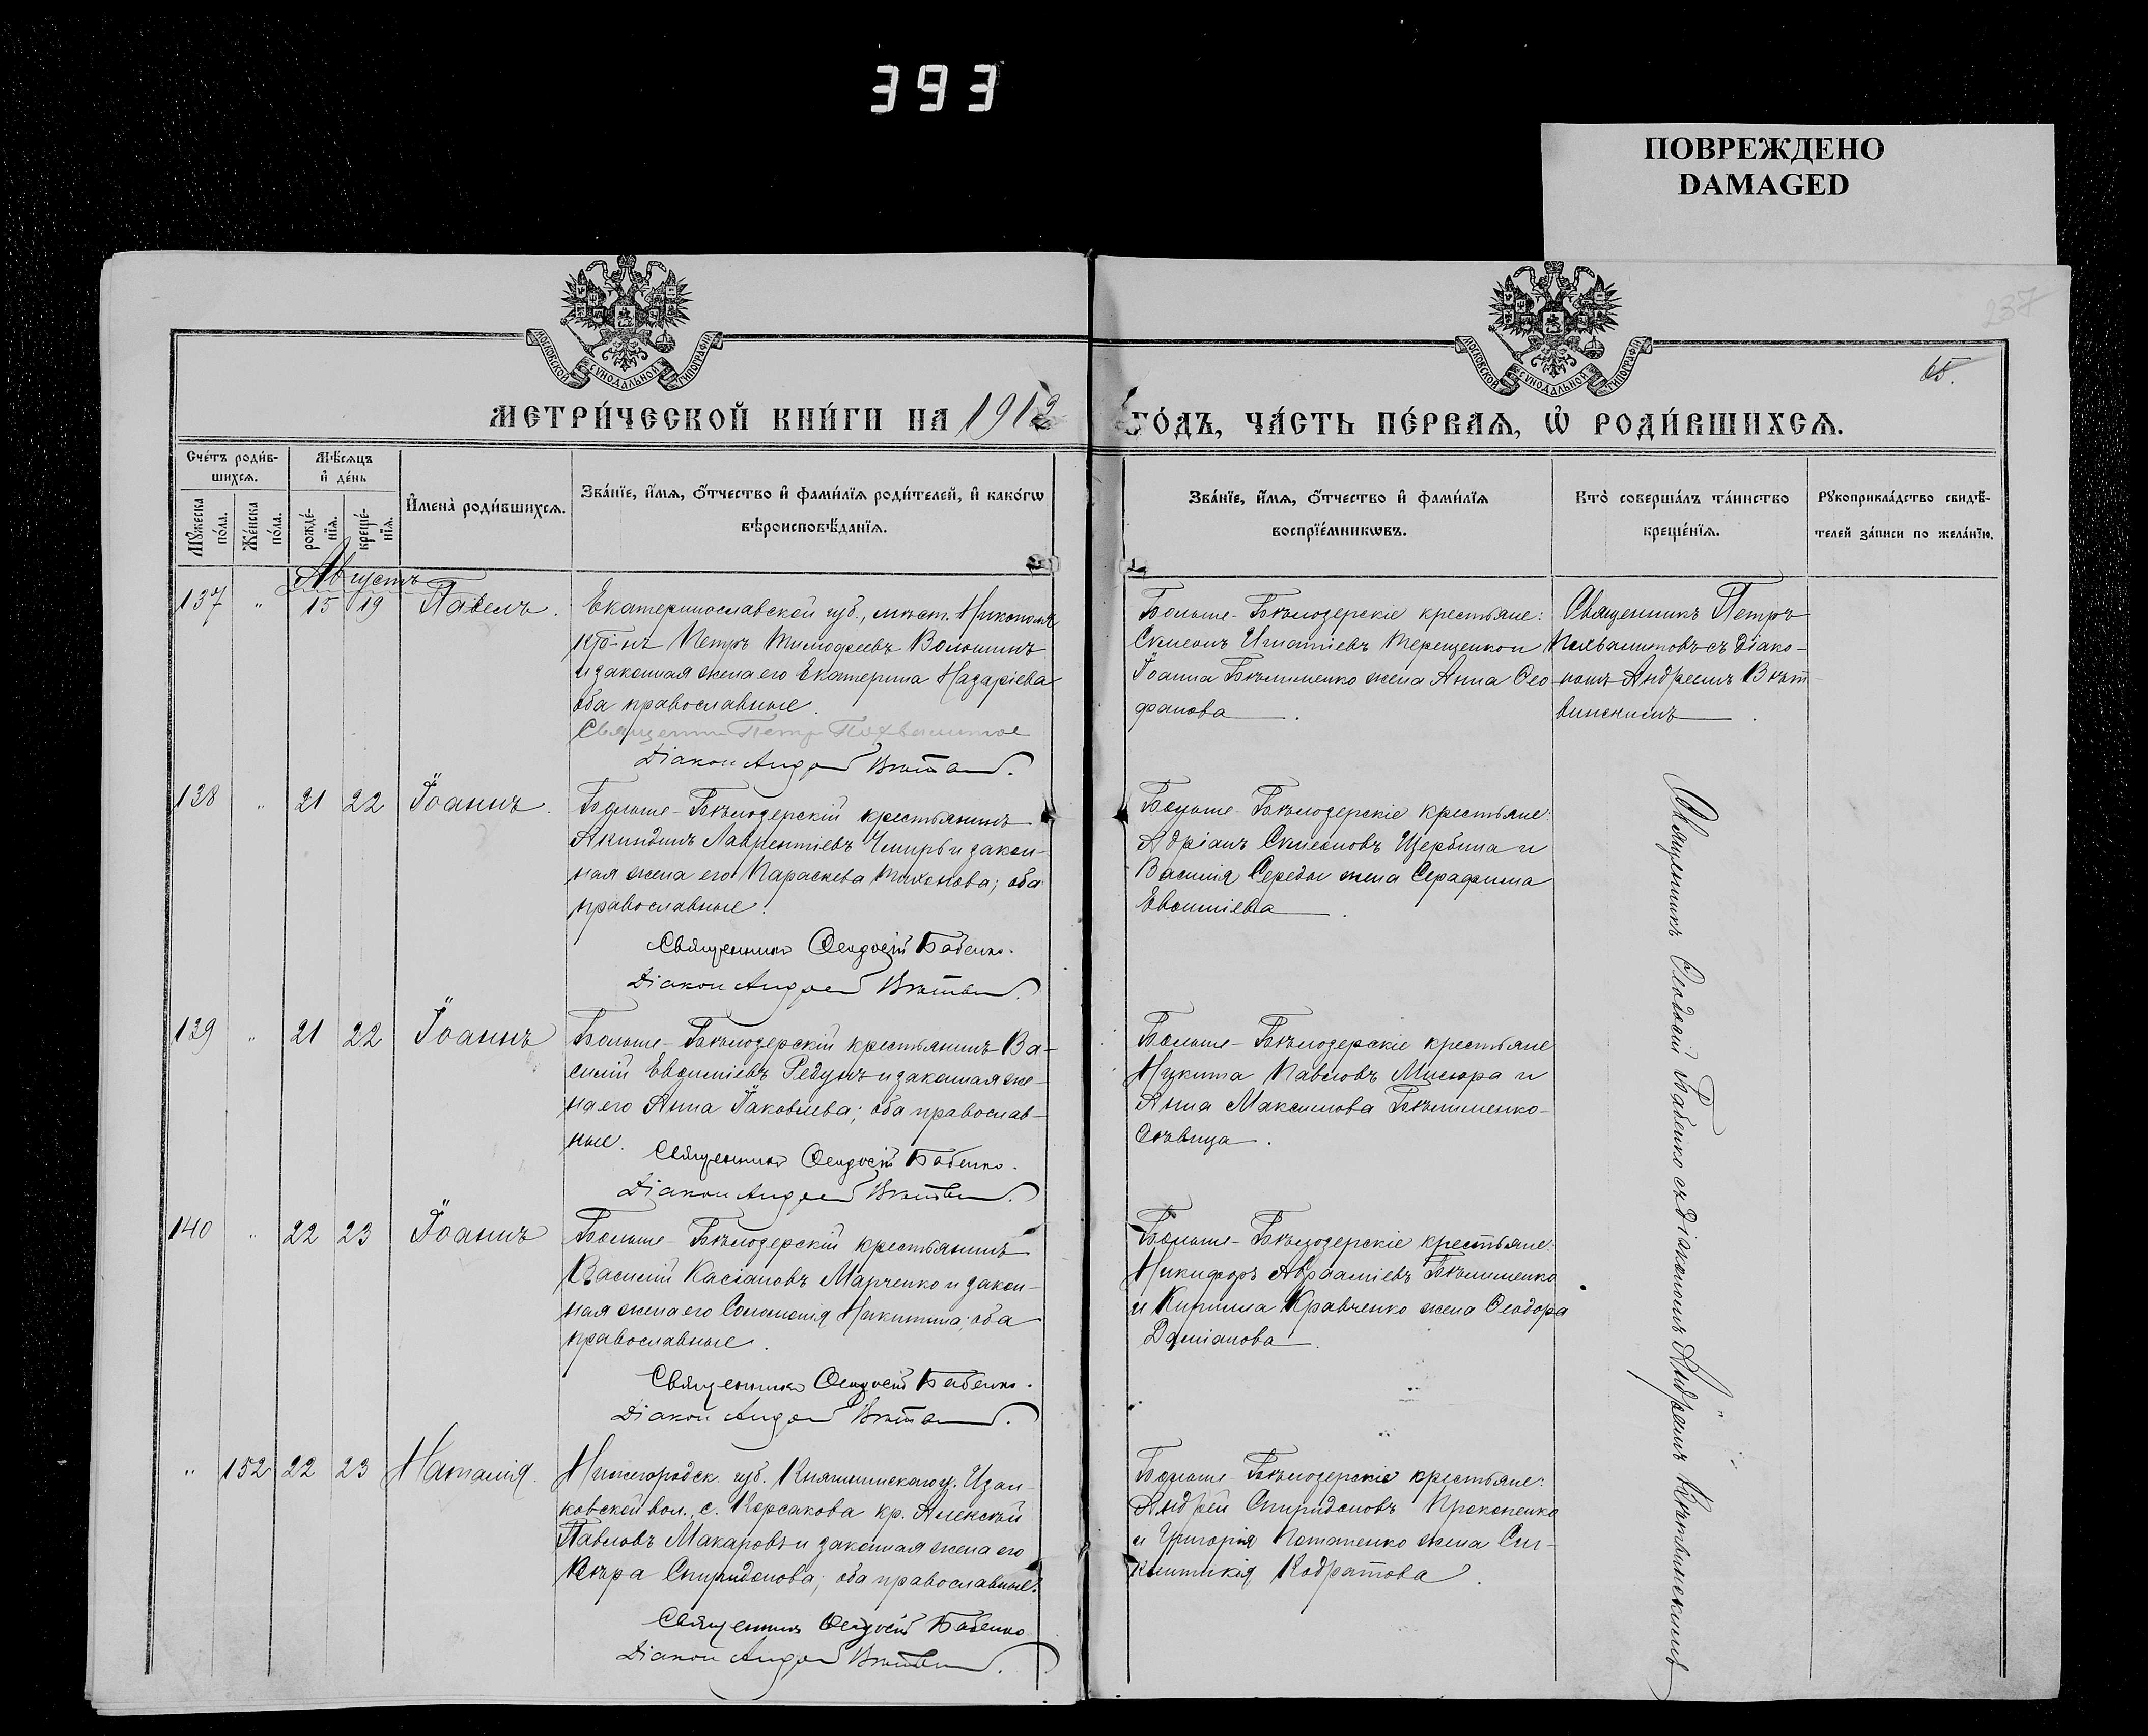 393
ПОВРЕЖДЕНО
DAMAGED
237
65.
МОСКОВСКОЙ СУНОДАЛЬНОЙ ТИПОГРАФІИ
МОСКОВСКОЙ СУНОДАЛЬНОЙ ТИПОГРАФІИ
МЕТРИ́ЧЕСКОЙ КНИ́ГИ НА 1912
ГО́ДЪ, ЧА́СТЬ ПЕ́РВАѦ, Ѡ҆ РОДИ́ВШИХСѦ.
Сче́тъ роди́в-
шихсѧ.
Мѣ́сѧцъ
и҆ де́нь
Мꙋжеска
по́ла.
Же́нска
по́ла.
рожде́-
нїѧ.
креще́-
нїѧ.
И҆мена̀ роди́вшихсѧ.
Зва́нїе, и҆́мѧ, ѻ҆́тчество и҆ фами́лїѧ роди́телей, и҆ како́гѡ
вѣроисповѣ́данїѧ.
Зва́нїе, и҆́мѧ, ѻ҆́тчество и҆ фами́лїѧ
воспрїе́мникѡвъ.
Кто̀ соверша́лъ та́инство
креще́нїѧ.
Рꙋкоприкла́дство свидѣ́-
телей за́писи по жела́нїю.
Августъ
137 " 15 19 Павелъ.
Екатеринославской губ., мѣст. Никополя
кр-нъ Петръ Тимофеевъ Волошинъ
и законная жена его Екатерина Назаріева
оба православные.
Священник Петр Похвалитов
Діакон Андрей
Больше-Бѣлозерскіе крестьяне:
Симеонъ Игнатіевъ Терещенко и
Іоанна Бѣлименко жена Анна Фео-
фанова.
Священникъ Петръ
Похвалитовъ съ Діако-
номъ Андреемъ Вѣт-
винскимъ.
138 " 21 22 Іоаннъ.
Больше-Бѣлозерскій крестьянинъ
Акиндинъ Лаврентіевъ Чмирь и закон-
ная жена его Параскева Тихонова; оба
православные.
Священник Феодосій Бабенко.
Діакон Андрей
Больше-Бѣлозерскіе крестьяне:
Адріанъ Симеоновъ Щербина и
Василія Середы жена Серафима
Евфиміева.
139 " 21 22 Іоаннъ
Больше-Бѣлозерскій крестьянинъ Ва-
силій Евфиміевъ Редунъ и законная же-
на его Анна Іаковлева; оба православ-
ные.
Священник Феодосій Бабенко.
Діакон Андрей
Больше-Бѣлозерскіе крестьяне
Никита Павловъ Мисюра и
Анна Максимова Бѣлименко-
дѣвица.
140 " 22 23 Іоаннъ
Больше-Бѣлозерскій крестьянинъ
Василій Касіановъ Марченко и закон-
ная жена его Соломонія Никитина; оба
православные.
Священник Феодосій Бабенко.
Діакон Андрей
Больше-Бѣлозерскіе крестьяне:
Никифоръ Авраамиевъ Бѣлименко
и Кирилла Кравченко жена Феодора
Даміанова.
" 152 22 23 Наталія.
Нижегородск. губ. Княгининскаго у.
ковской вол., с. Корсакова кр. Алексѣй
Павловъ Макаровъ и законная жена его
Вѣра Спиридонова; оба православные.
Священник Феодосій Бабенко
Діакон Андрей
Больше-Бѣлозерскіе крестьяне:
Андрей Спиридоновъ Прокопенко
и Григорія Потапенко жена Син-
клитикія Кодратова.
Священникъ Феодосій Бабенко съ діакономъ Андреемъ Вѣтвинскимъ